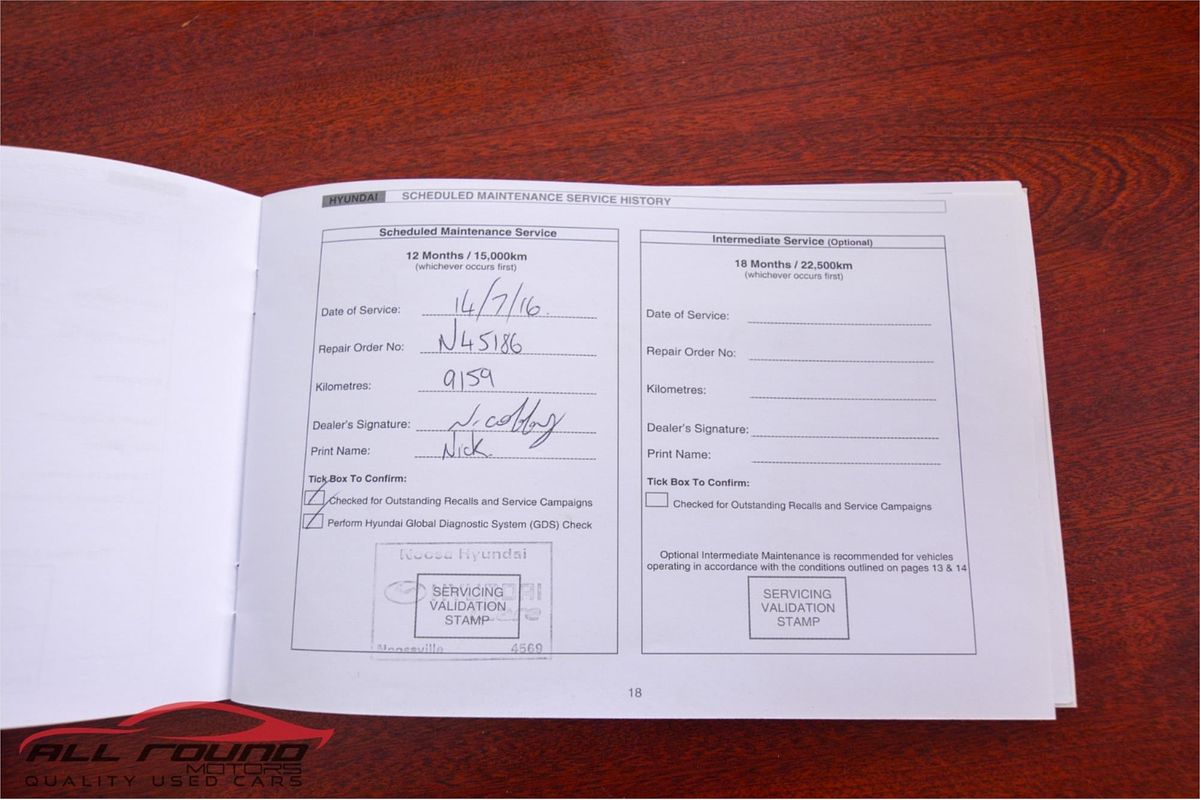 HYUNDAI SCHEDULED MAINTENANCE SERVICE HISTORY
Scheduled Maintenance Service
12 Months / 15,000km
(whichever occurs first)
Date of Service: 14/7/16
Repair Order No: N45186
Kilometres: 9159
Dealer's Signature:
Print Name: Nick
Tick Box To Confirm:
Checked for Outstanding Recalls and Service Campaigns
Perform Hyundai Global Diagnostic System (GDS) Check
Noosa Hyundai
HYUNDAI
SERVICING
VALIDATION
STAMP
Noosaville 4569
Intermediate Service (Optional)
18 Months / 22,500km
(whichever occurs first)
Date of Service:
Repair Order No:
Kilometres:
Dealer's Signature:
Print Name:
Tick Box To Confirm:
Checked for Outstanding Recalls and Service Campaigns
Optional Intermediate Maintenance is recommended for vehicles
operating in accordance with the conditions outlined on pages 13 & 14
SERVICING
VALIDATION
STAMP
18
ALL ROUND
MOTORS
QUALITY USED CARS